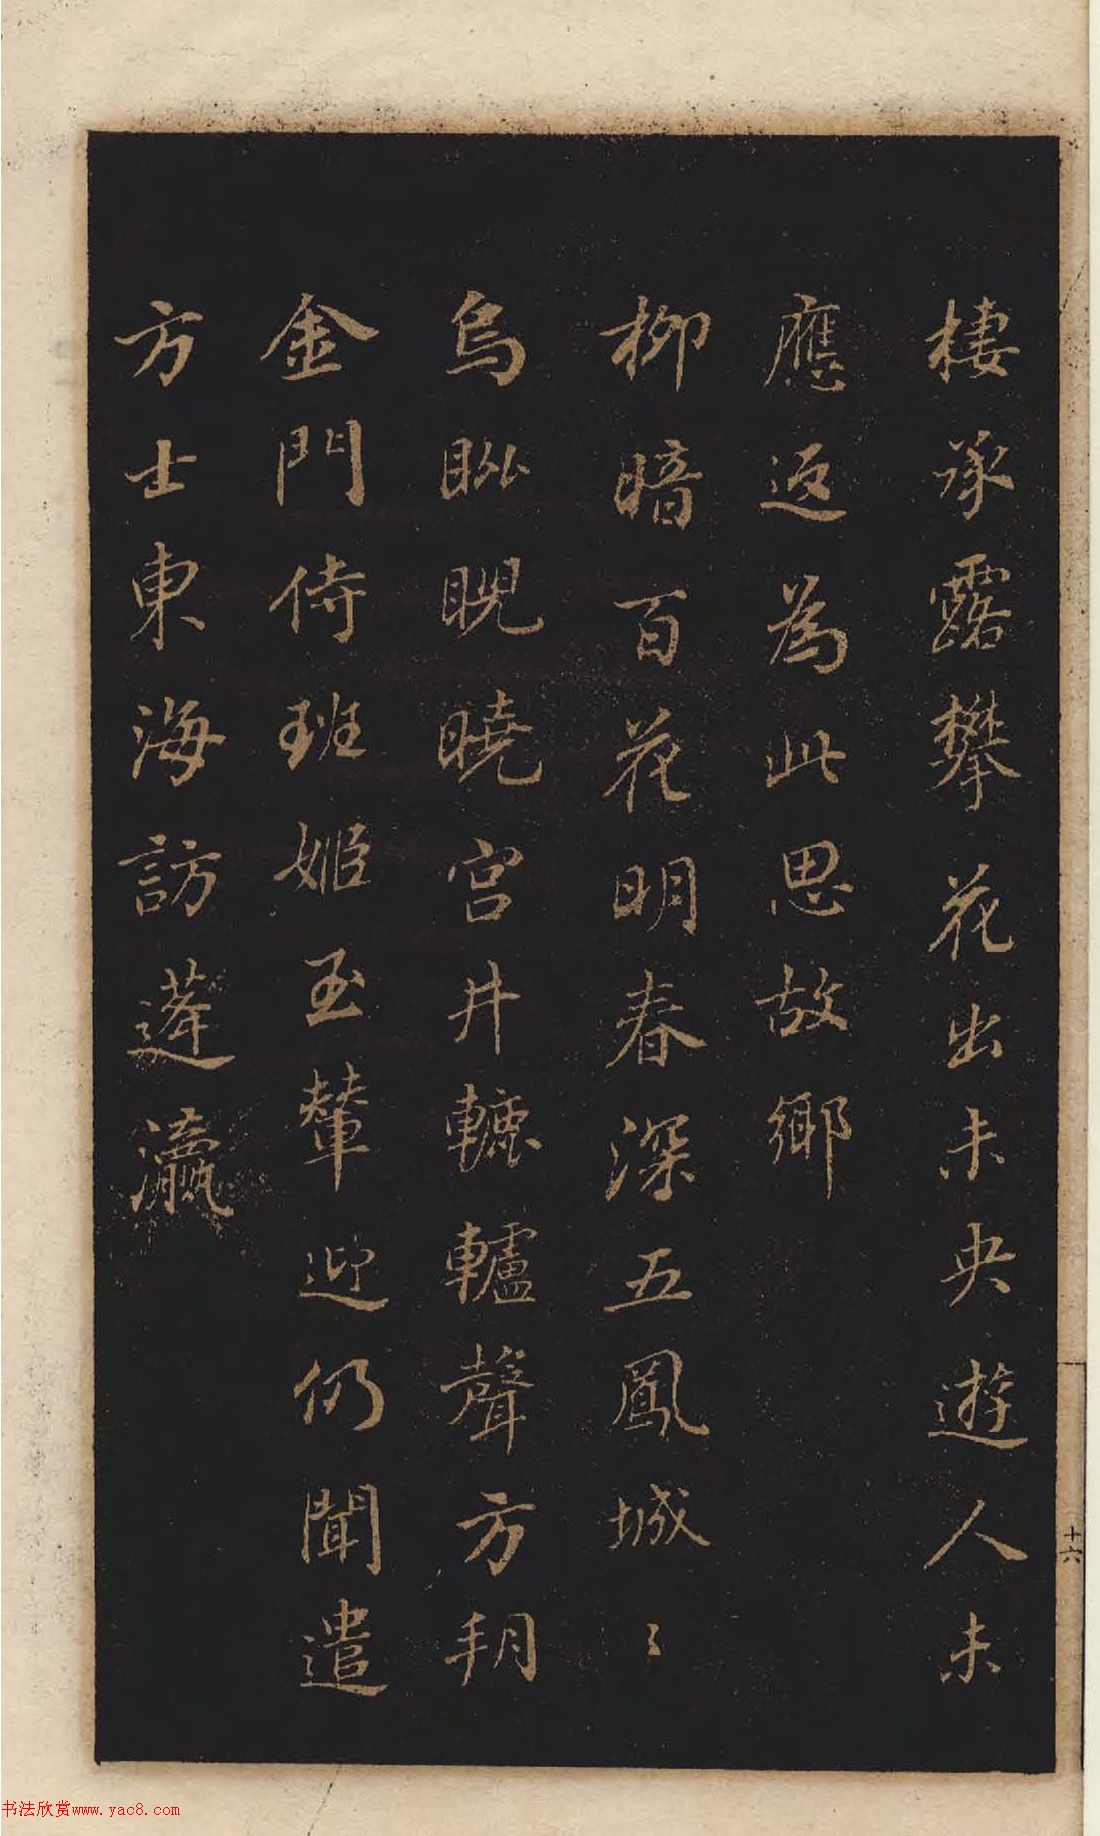 棲承露攀花出未央遊人未
應返為此思故鄉
柳暗百花明春深五鳳城〻
烏睥睨曉宮井轆轤聲方朔
金門侍班姬玉輦迎仍聞遣
方士東海訪蓬瀛
十六
书法欣赏www.yac8.com